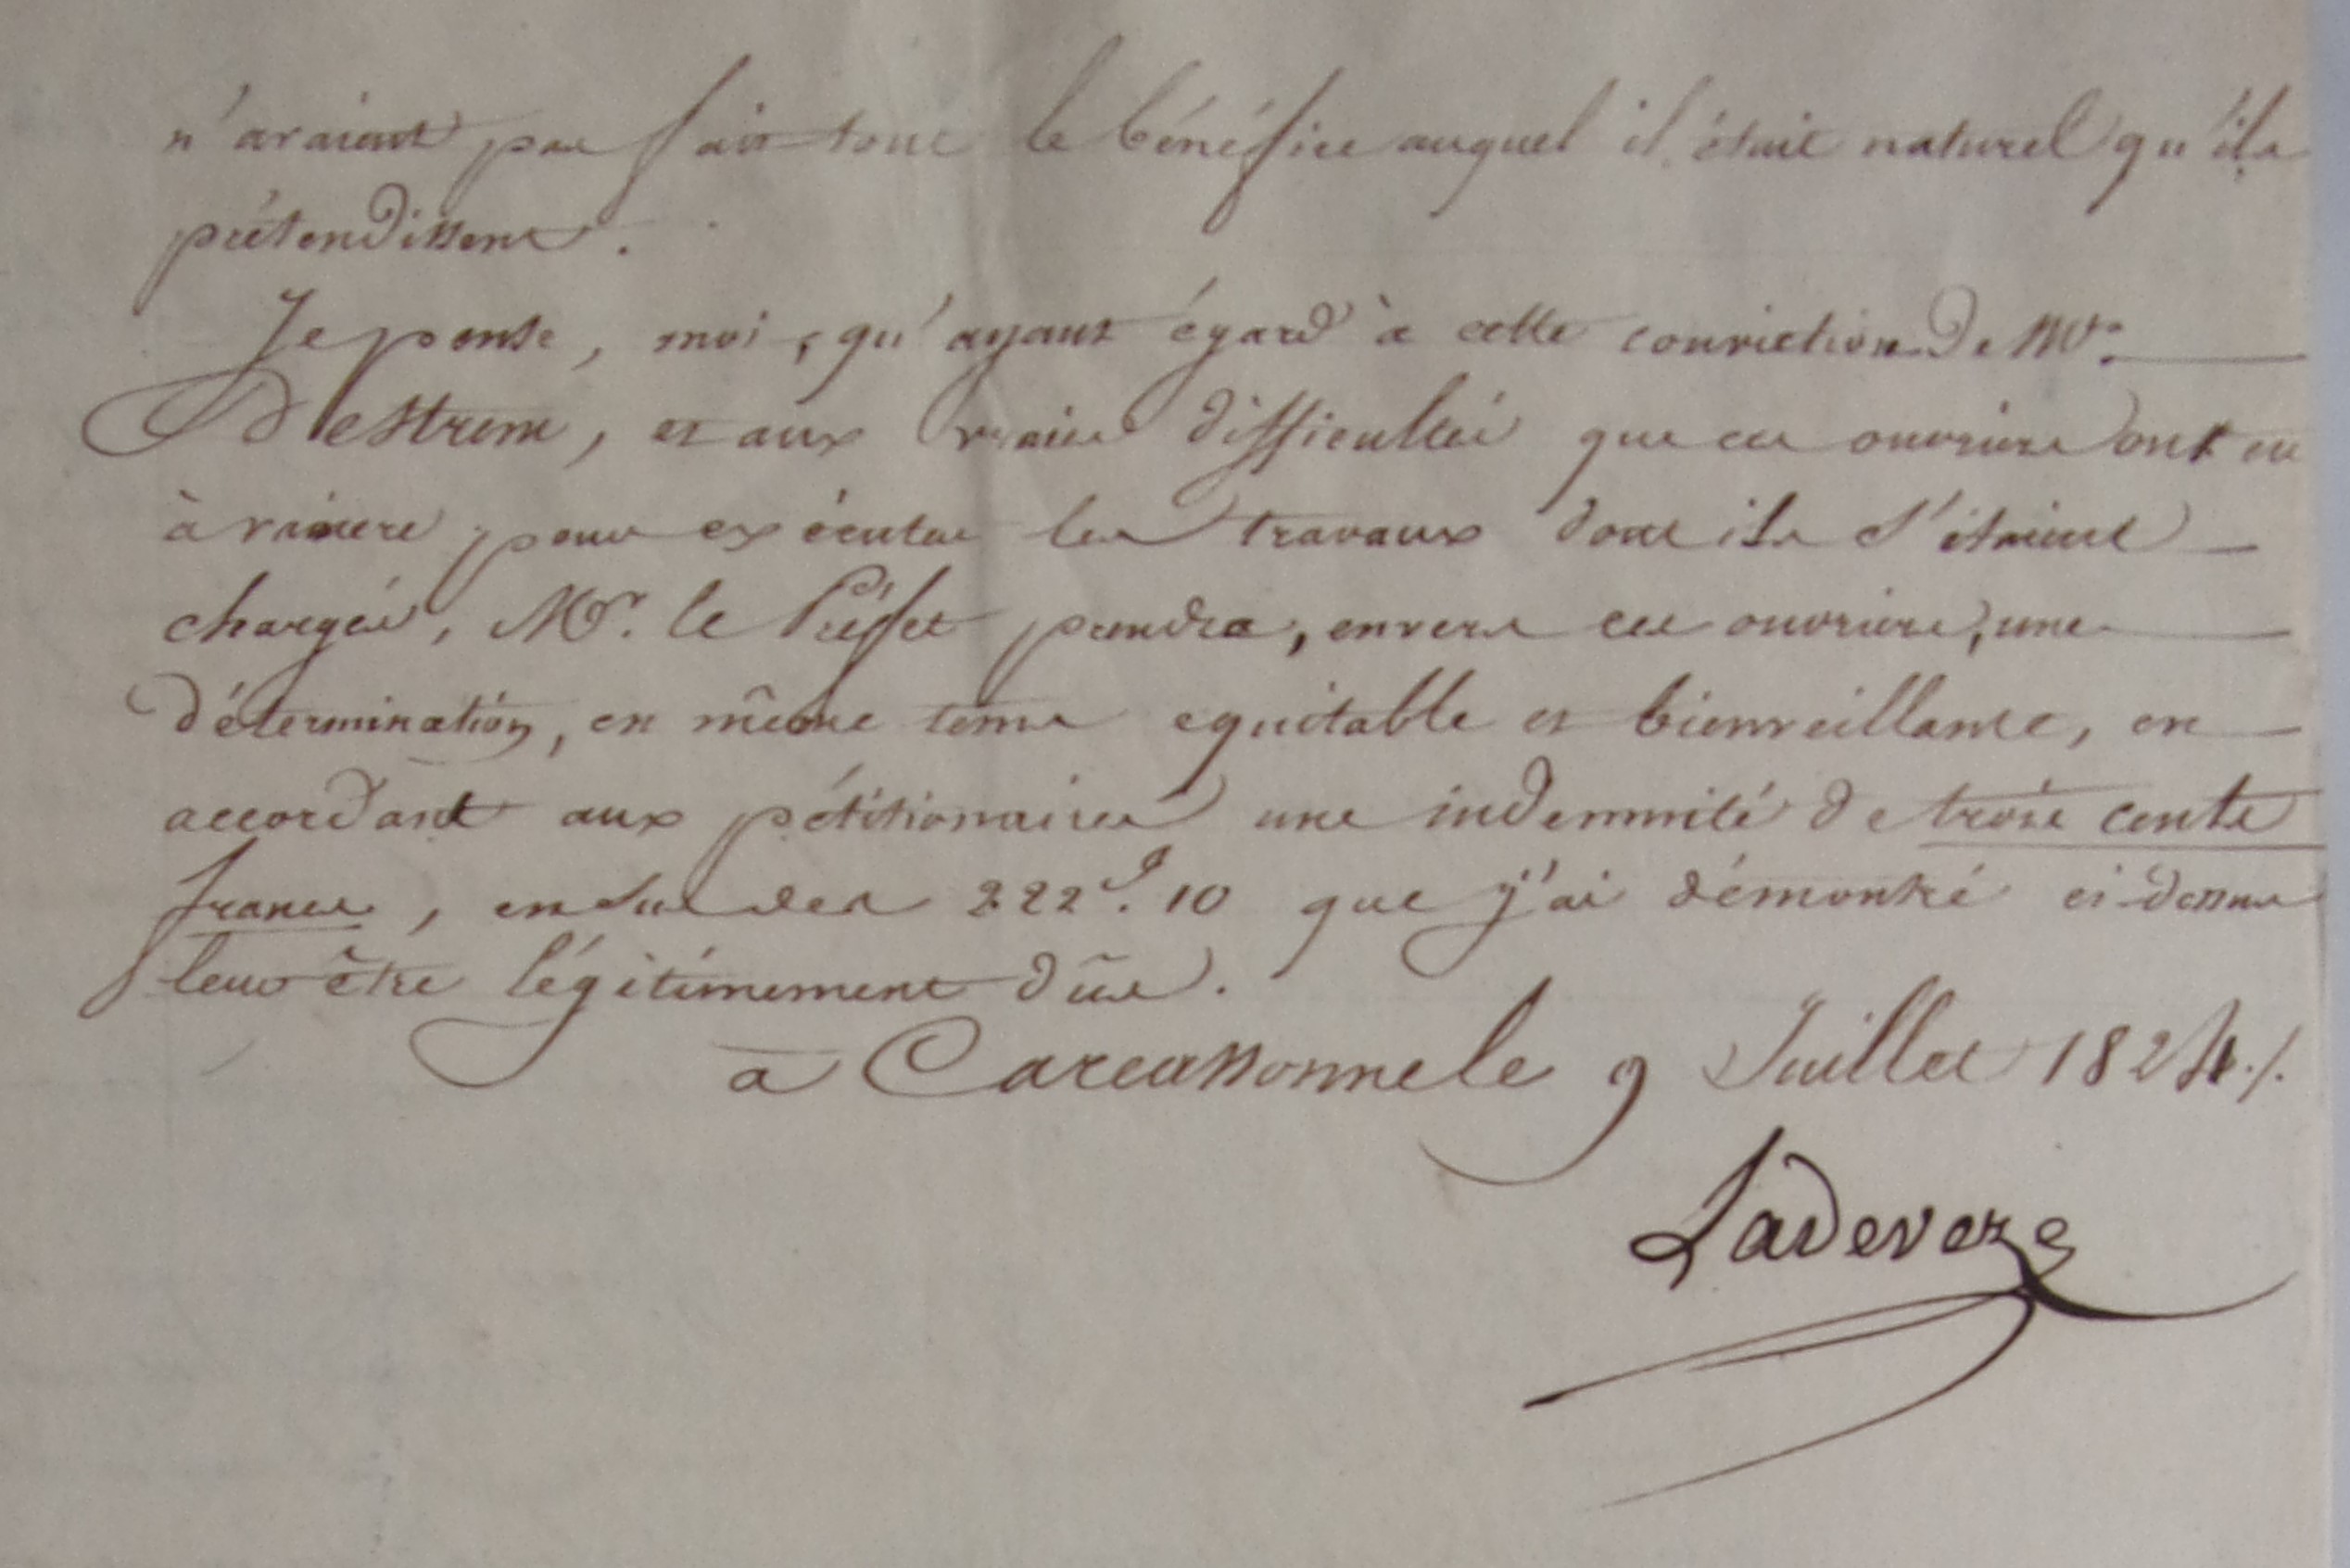 n'avaient pas fait tout le bénéfice auquel il était naturel qu'ils
prétendissent.
Je pense, moi, qu'ayant égard à cette conviction de Mr.
Destrem, et aux vraies difficultés que ces ouvriers ont eu
à vaincre pour exécuter les travaux dont ils s'étaient
chargés, Mr. le Préfet prendra, envers ces ouvriers, une
détermination, en même tems equitable et bienveillante, en
accordant aux pétitionaires une indemnité de trois cents
francs, en sus des 222f. 10 que j'ai démontré ci-dessus
leur être légitimement dûs.
à Carcassonne le 9 Juillet 1824./.
Ladeveze